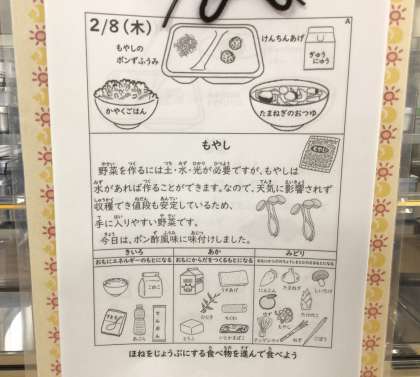 2/8(木)
A
もやしの
ポンずふうみ
けんちんあげ
ぎゅう
にゅう
かやくごはん
たまねぎのおつゆ
もやし
野菜を作るには土・水・光が必要ですが、もやしは
水があれば作ることができます。なので、天気に影響されず
収穫でき値段も安定しているため、
手に入りやすい野菜です。
今日は、ポン酢風味に味付けしました。
きいろ
あか
みどり
おもにエネルギーのもとになる
おもにからだをつくるもとになる
こめこ
あぶら
でんぷん
とうふ
にんじん
たまねぎ
しいたけ
もやし
ねぎ
ごぼう
ほねをじょうぶにする食べ物を進んで食べよう